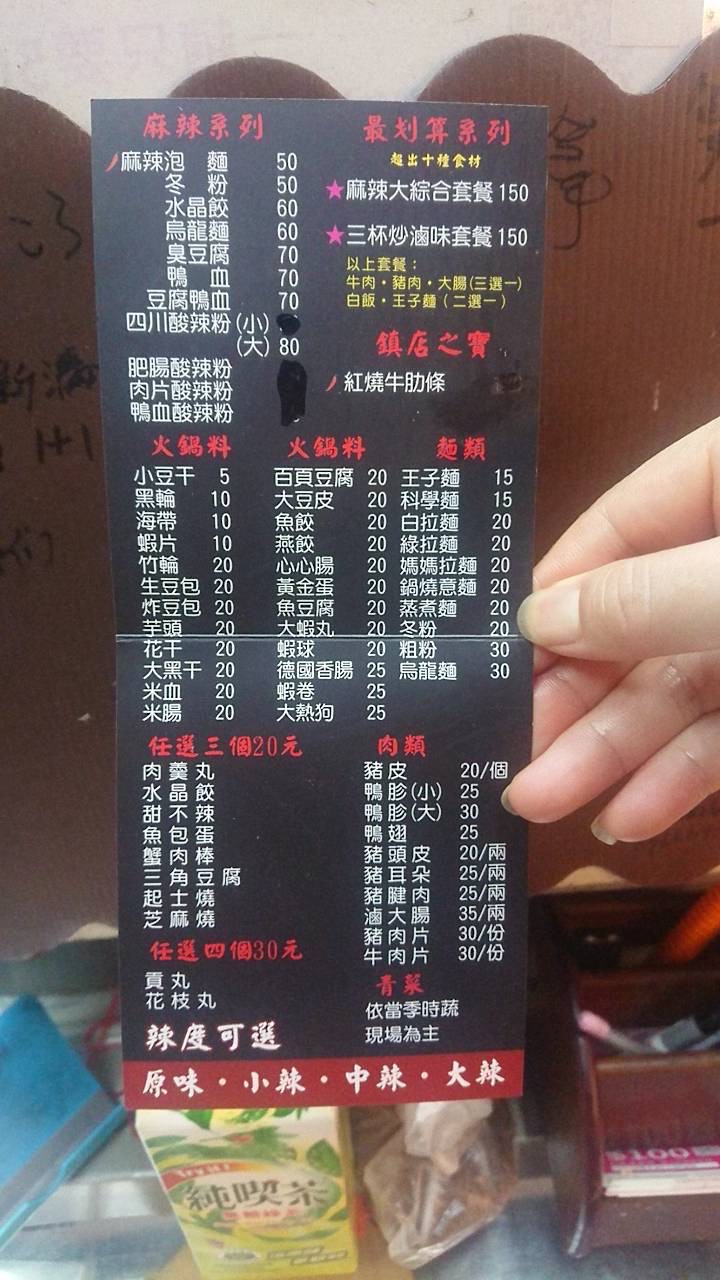 麻辣系列
麻辣泡 麵 50
冬 粉 50
水晶餃 60
烏龍麵 60
臭豆腐 70
鴨 血 70
豆腐鴨血 70
四川酸辣粉(小)
(大) 80
肥腸酸辣粉
肉片酸辣粉
鴨血酸辣粉
最划算系列
超出十種食材
★麻辣大綜合套餐 150
★三杯炒滷味套餐 150
以上套餐：
牛肉・豬肉・大腸(三選一)
白飯・王子麵（二選一）
鎮店之寶
紅燒牛肋條
火鍋料
小豆干 5
黑輪 10
海帶 10
蝦片 10
竹輪 20
生豆包 20
炸豆包 20
芋頭 20
花干 20
大黑干 20
米血 20
米腸 20
火鍋料
百頁豆腐 20
大豆皮 20
魚餃 20
燕餃 20
心心腸 20
黃金蛋 20
魚豆腐 20
大蝦丸 20
蝦球 20
德國香腸 25
蝦卷 25
大熱狗 25
麵類
王子麵 15
科學麵 15
白拉麵 20
綠拉麵 20
媽媽拉麵 20
鍋燒意麵 20
蒸煮麵 20
冬粉 20
粗粉 30
烏龍麵 30
任選三個20元
肉羹丸
水晶餃
甜不辣
魚包蛋
蟹肉棒
三角豆腐
起士燒
芝麻燒
任選四個30元
貢丸
花枝丸
肉類
豬皮 20/個
鴨胗(小) 25
鴨胗(大) 30
鴨翅 25
豬頭皮 20/兩
豬耳朵 25/兩
豬腱肉 25/兩
滷大腸 35/兩
豬肉片 30/份
牛肉片 30/份
青菜
依當季時蔬
現場為主
辣度可選
原味・小辣・中辣・大辣
純喫茶
$100
1+1